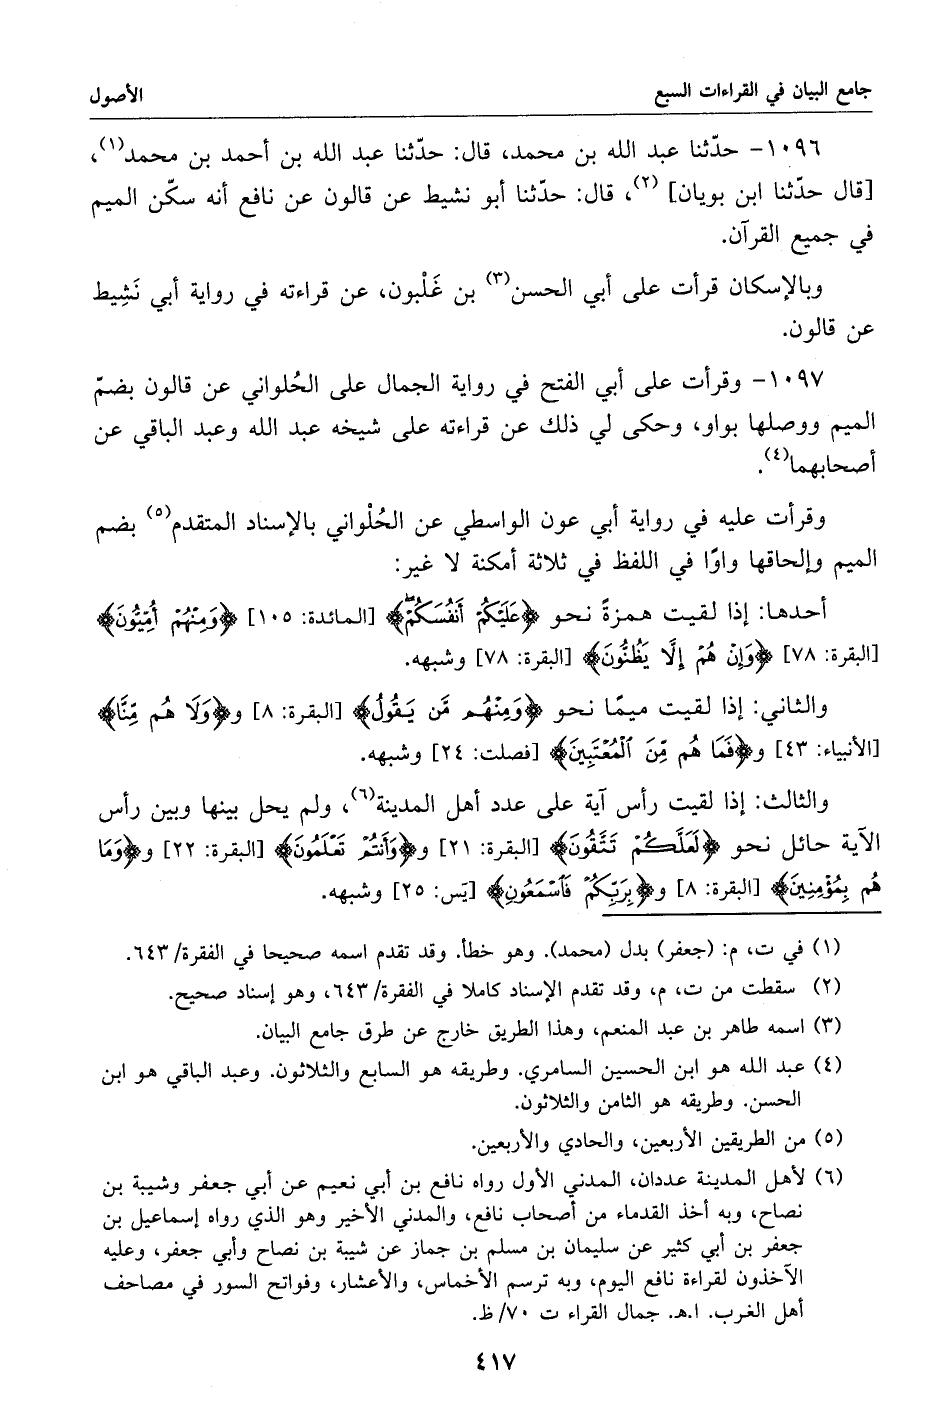 جامع البيان في القراءات السبع
الأصول
١٠٩٦- حدّثنا عبد الله بن محمد، قال: حدّثنا عبد الله بن أحمد بن محمد(١)،
[قال حدّثنا ابن بويان] (٢)، قال: حدّثنا أبو نشيط عن قالون عن نافع أنه سكّن الميم
في جميع القرآن.
وبالإسكان قرأت على أبي الحسن(٣) بن غَلْبون، عن قراءته في رواية أبي نَشِيط
عن قالون.
١٠٩٧- وقرأت على أبي الفتح في رواية الجمال على الحُلواني عن قالون بضمّ
الميم ووصلها بواو، وحكى لي ذلك عن قراءته على شيخه عبد الله وعبد الباقي عن
أصحابهما(٤).
وقرأت عليه في رواية أبي عون الواسطي عن الحُلْواني بالإسناد المتقدم(٥) بضم
الميم وإلحاقها واوًا في اللفظ في ثلاثة أمكنة لا غير:
أحدها: إذا لقيت همزةً نحو ﴿عَلَيْكُمْ أَنْفُسَكُمْۖ﴾ [المائدة: ١٠٥] ﴿وَمِنْهُمْ أُمِّيُّونَ﴾
[البقرة: ٧٨] ﴿وَإِنْ هُمْ إِلَّا يَظُنُّونَ﴾ [البقرة: ٧٨] وشبهه.
والثاني: إذا لقيت ميمًا نحو ﴿وَمِنْهُم مَّن يَقُولُ﴾ [البقرة: ٨] و﴿وَلَا هُم مِّنَّا﴾
[الأنبياء: ٤٣] و﴿فَمَا هُم مِّنَ ٱلْمُعْتَبِينَ﴾ [فصلت: ٢٤] وشبهه.
والثالث: إذا لقيت رأس آية على عدد أهل المدينة(٦)، ولم يحل بينها وبين رأس
الآية حائل نحو ﴿لَعَلَّكُمْ تَتَّقُونَ﴾ [البقرة: ٢١] و﴿وَأَنتُمْ تَعْلَمُونَ﴾ [البقرة: ٢٢] و﴿وَمَا
هُم بِمُؤْمِنِينَ﴾ [البقرة: ٨] و﴿بِرَبِّكُمْ فَٱسْمَعُونِ﴾ [يَس: ٢٥] وشبهه.
(١) في ت، م: (جعفر) بدل (محمد). وهو خطأ. وقد تقدم اسمه صحيحا في الفقرة/ ٦٤٣.
(٢) سقطت من ت، م، وقد تقدم الإسناد كاملا في الفقرة/ ٦٤٣، وهو إسناد صحيح.
(٣) اسمه طاهر بن عبد المنعم، وهذا الطريق خارج عن طرق جامع البيان.
(٤) عبد الله هو ابن الحسين السامري. وطريقه هو السابع والثلاثون. وعبد الباقي هو ابن
الحسن. وطريقه هو الثامن والثلاثون.
(٥) من الطريقين الأربعين، والحادي والأربعين.
(٦) لأهل المدينة عددان، المدني الأول رواه نافع بن أبي نعيم عن أبي جعفر وشيبة بن
نصاح، وبه أخذ القدماء من أصحاب نافع، والمدني الأخير وهو الذي رواه إسماعيل بن
جعفر بن أبي كثير عن سليمان بن مسلم بن جماز عن شيبة بن نصاح وأبي جعفر، وعليه
الآخذون لقراءة نافع اليوم، وبه ترسم الأخماس، والأعشار، وفواتح السور في مصاحف
أهل الغرب. ا.هـ. جمال القراء ت ٧٠/ ظ.
٤١٧